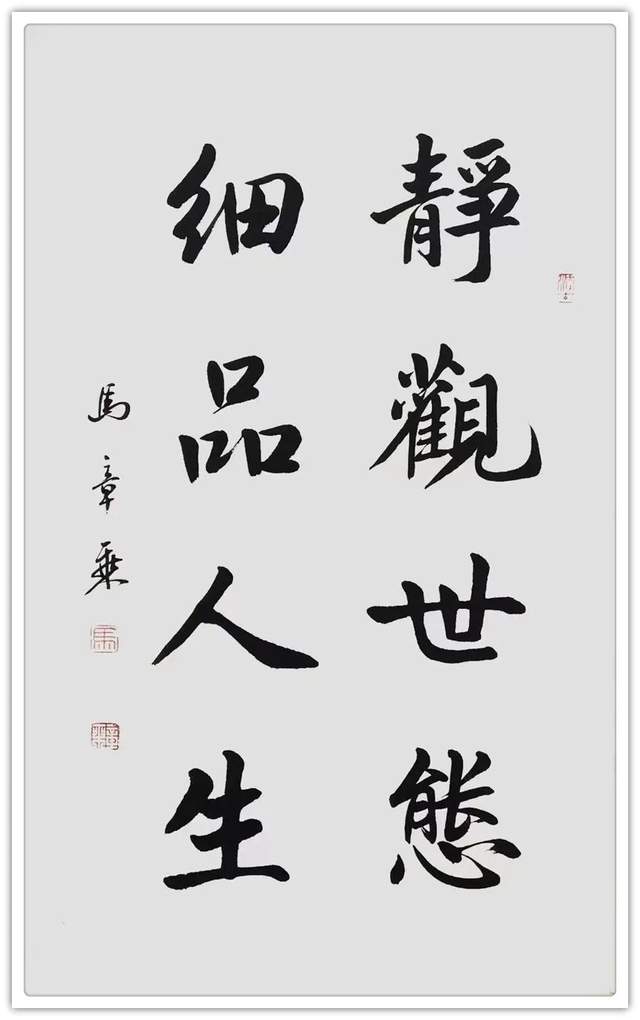 靜觀世態
细品人生
馬章乘